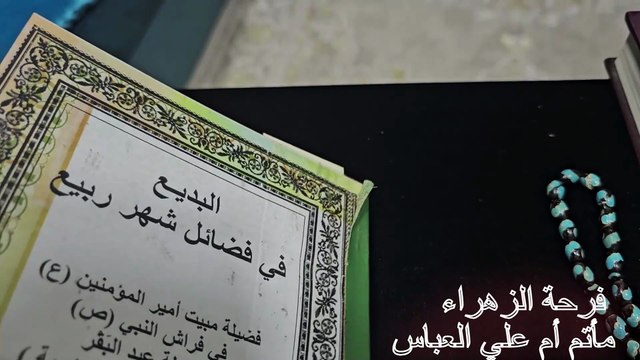 البديع
في فضائل شهر ربيع
فضيلة مبيت أمير المؤمنين (ع)
في فراش النبي (ص)
عيد البقر
فرحة الزهراء
مأتم أم علي العباس